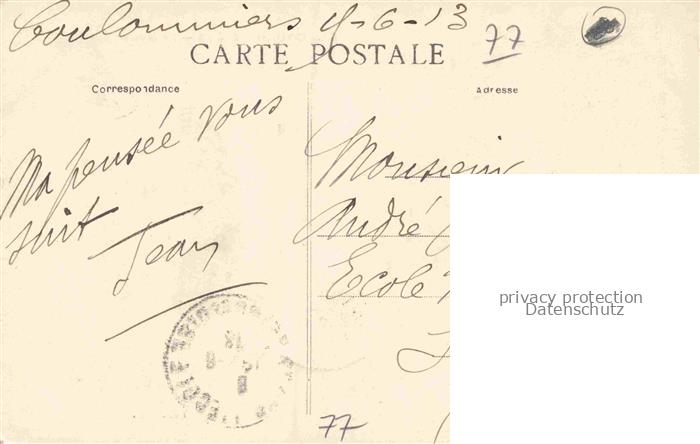 Coulommiers 4-6-13
77
CARTE POSTALE
Correspondance
Adresse
Ma pensée vous
suit
Jean
Monsieur
André
Ecole
privacy protection
Datenschutz
77